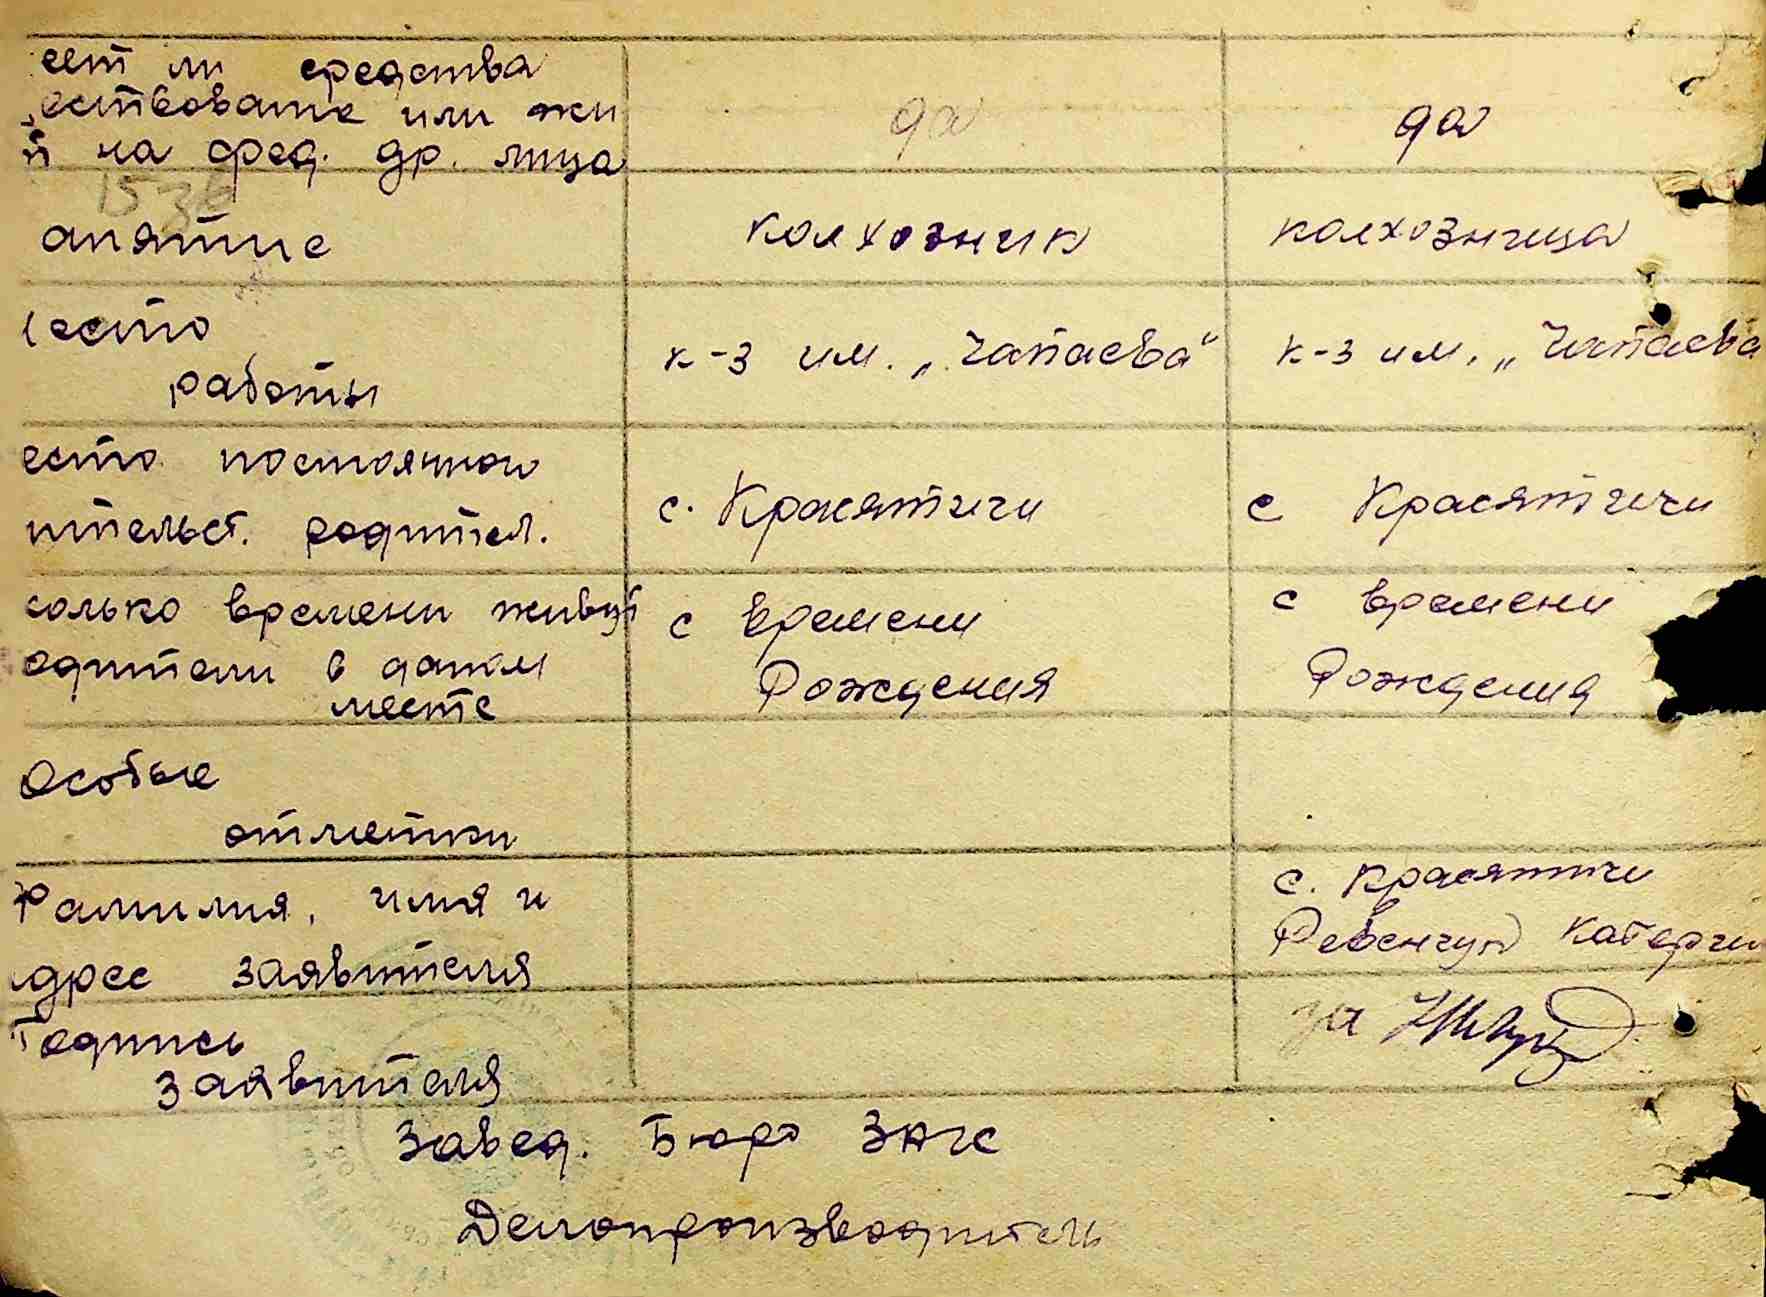 еет ли средства
ествование или жи
й на сред. др. лица
153
анятие
колхозник
колхозница
место
работы
к-з им. „Чапаева"
к-з им. „Чапаева
есто постоянного
ительст. родител.
с. Красятичи
с Красятичи
колько времени живут
одители в даном
месте
с времени
Рождения
с времени
Рождения
Особые
отметки
Фамилия, имя и
адрес заявителя
с. Красятичи
Ревенчук Катерин
Подпись
заявителя
за
Завед. Бюро ЗАГС
Делопроизводитель
да
да